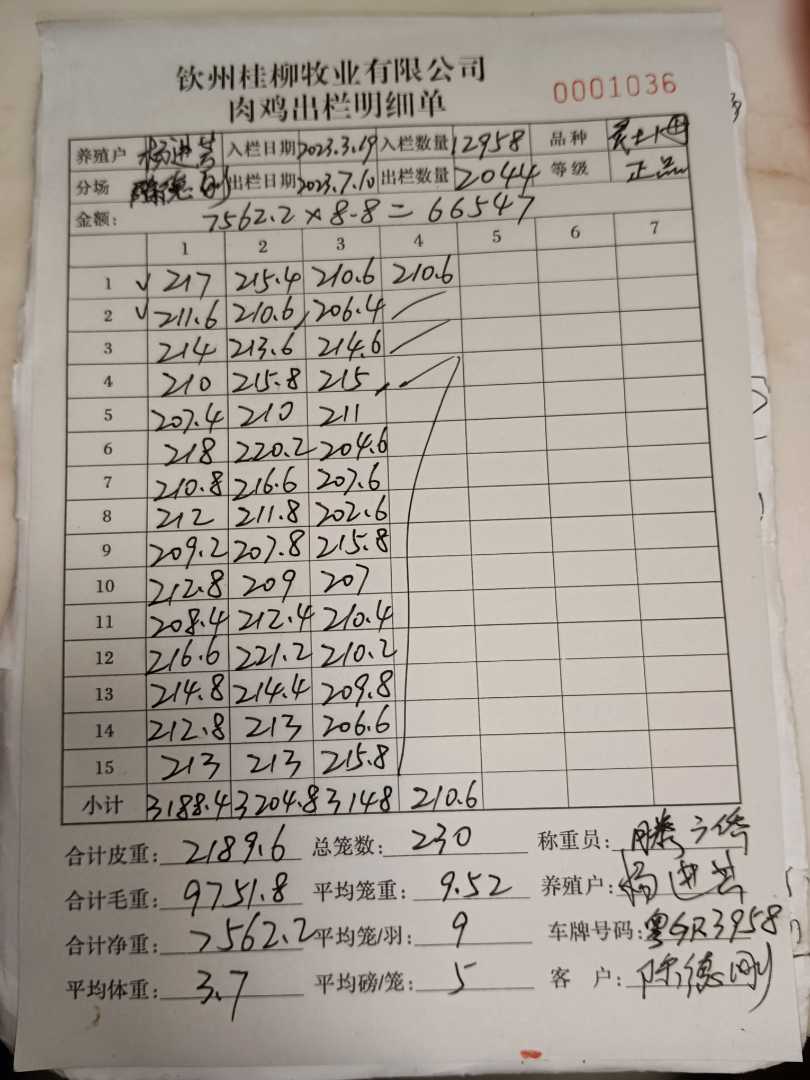 钦州桂柳牧业有限公司
肉鸡出栏明细单
0001036
养殖户 杨进芸 入栏日期 2023.3.19 入栏数量 12958 品种
分场 陈德刚 出栏日期 2023.7.10 出栏数量 2044 等级 正品
金额: 7562.2×8.8=66547
1 2 3 4 5 6 7
1 √ 217 215.4 210.6 210.6
2 √ 211.6 210.6 206.4
3 214 213.6 214.6
4 210 215.8 215
5 207.4 210 211
6 218 220.2 204.6
7 210.8 216.6 207.6
8 212 211.8 202.6
9 209.2 207.8 215.8
10 212.8 209 207
11 208.4 212.4 210.4
12 216.6 221.2 210.2
13 214.8 214.4 209.8
14 212.8 213 206.6
15 213 213 215.8
小计 3188.4 3204.8 3148 210.6
合计皮重: 2189.6 总笼数: 230 称重员:
合计毛重: 9751.8 平均笼重: 9.52 养殖户: 杨进芸
合计净重: 7562.2 平均笼/羽: 9 车牌号码: 粤GR3958
平均体重: 3.7 平均磅/笼: 5 客 户: 陈德刚